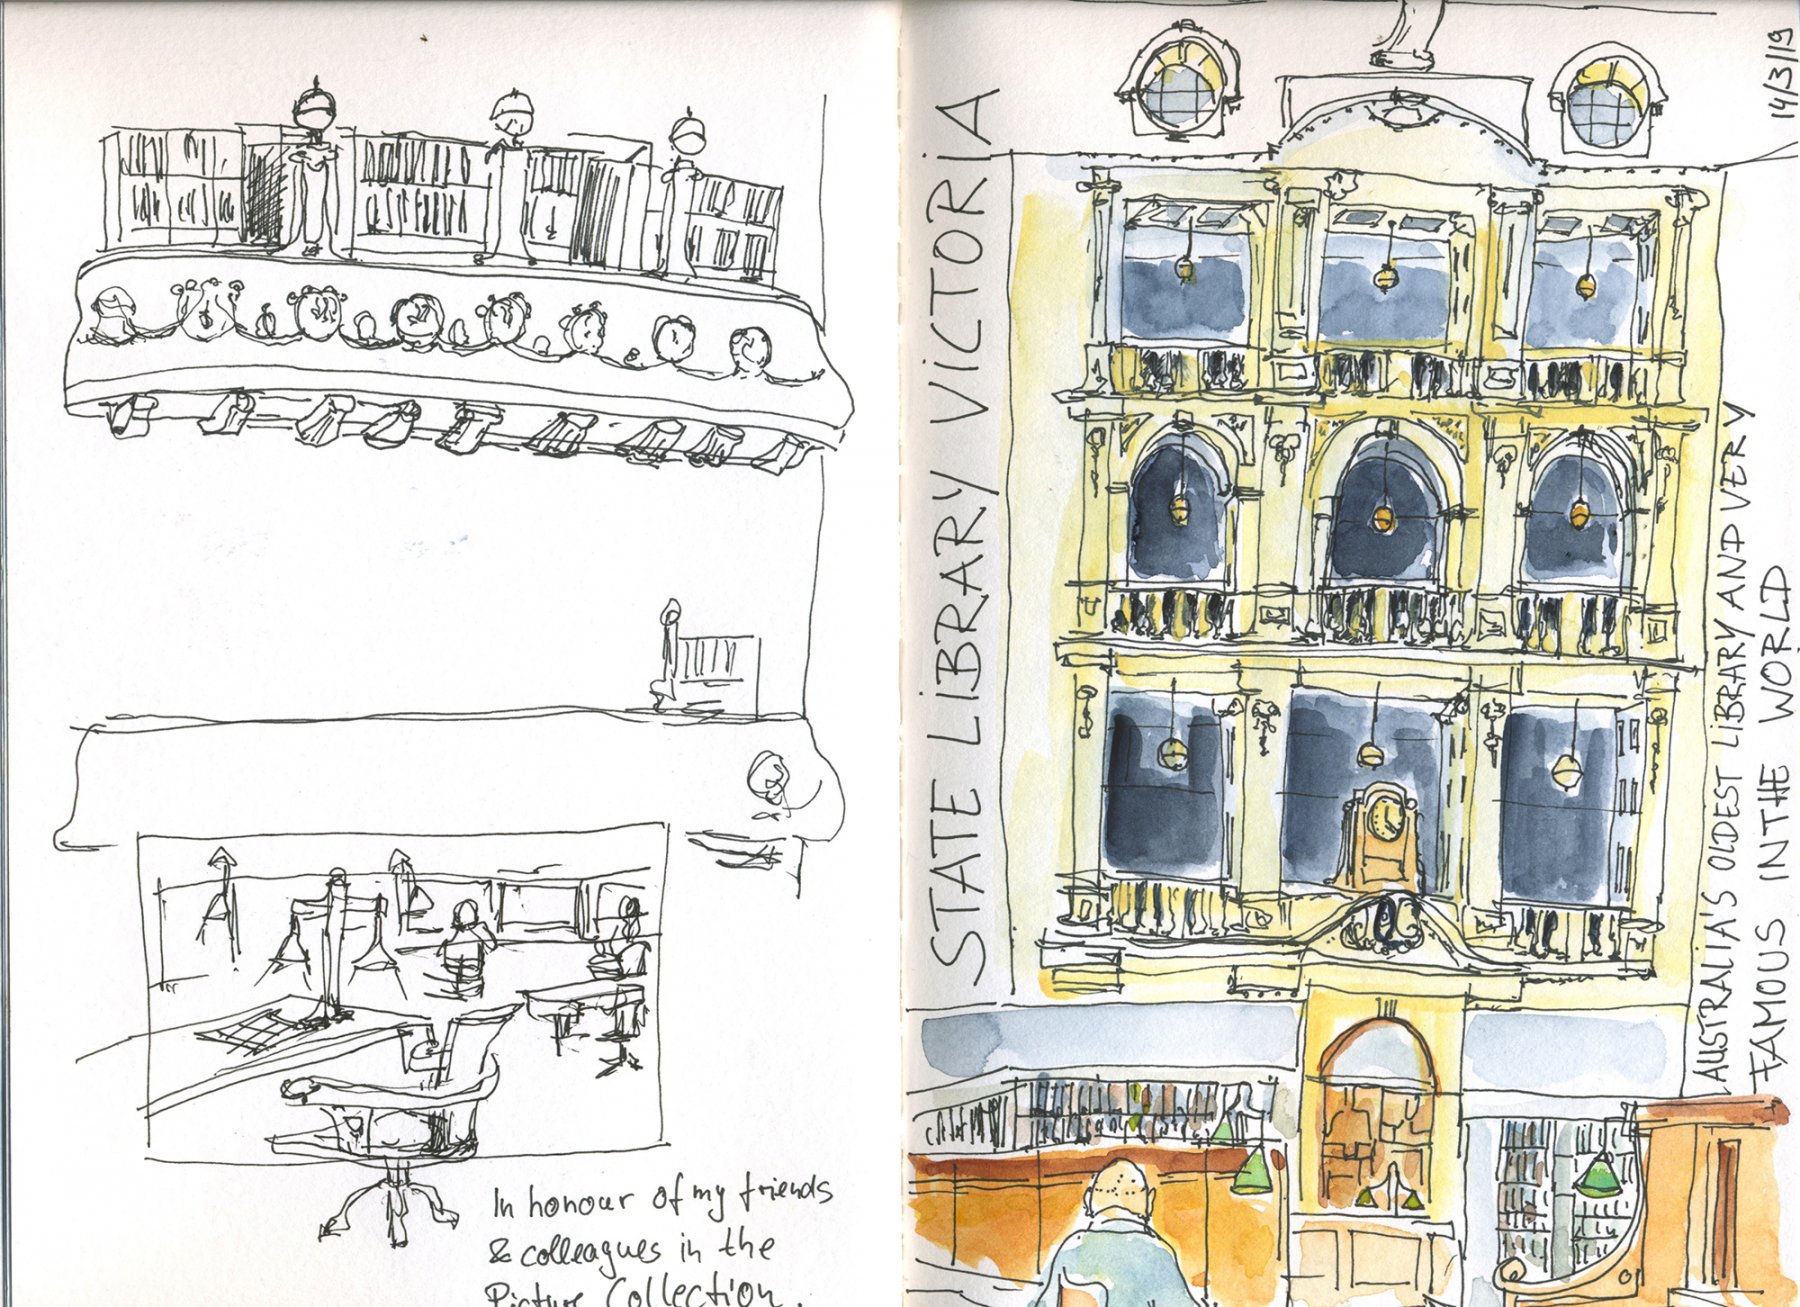 In honour of my friends
& colleagues in the
Picture Collection.
STATE LIBRARY VICTORIA
14/3/19
AUSTRALIA'S OLDEST LIBRARY AND VERY
FAMOUS IN THE WORLD